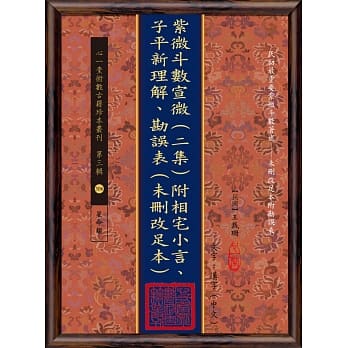 民初最重要紫微斗數著作──未刪改足本附勘誤表
【民國】王栽珊
文字：漢字（中文）
紫微斗數宣微（二集）附相宅小言、
子平新理解、勘誤表（未刪改足本）
心一堂術數古籍珍本叢刊　第三輯
星命類